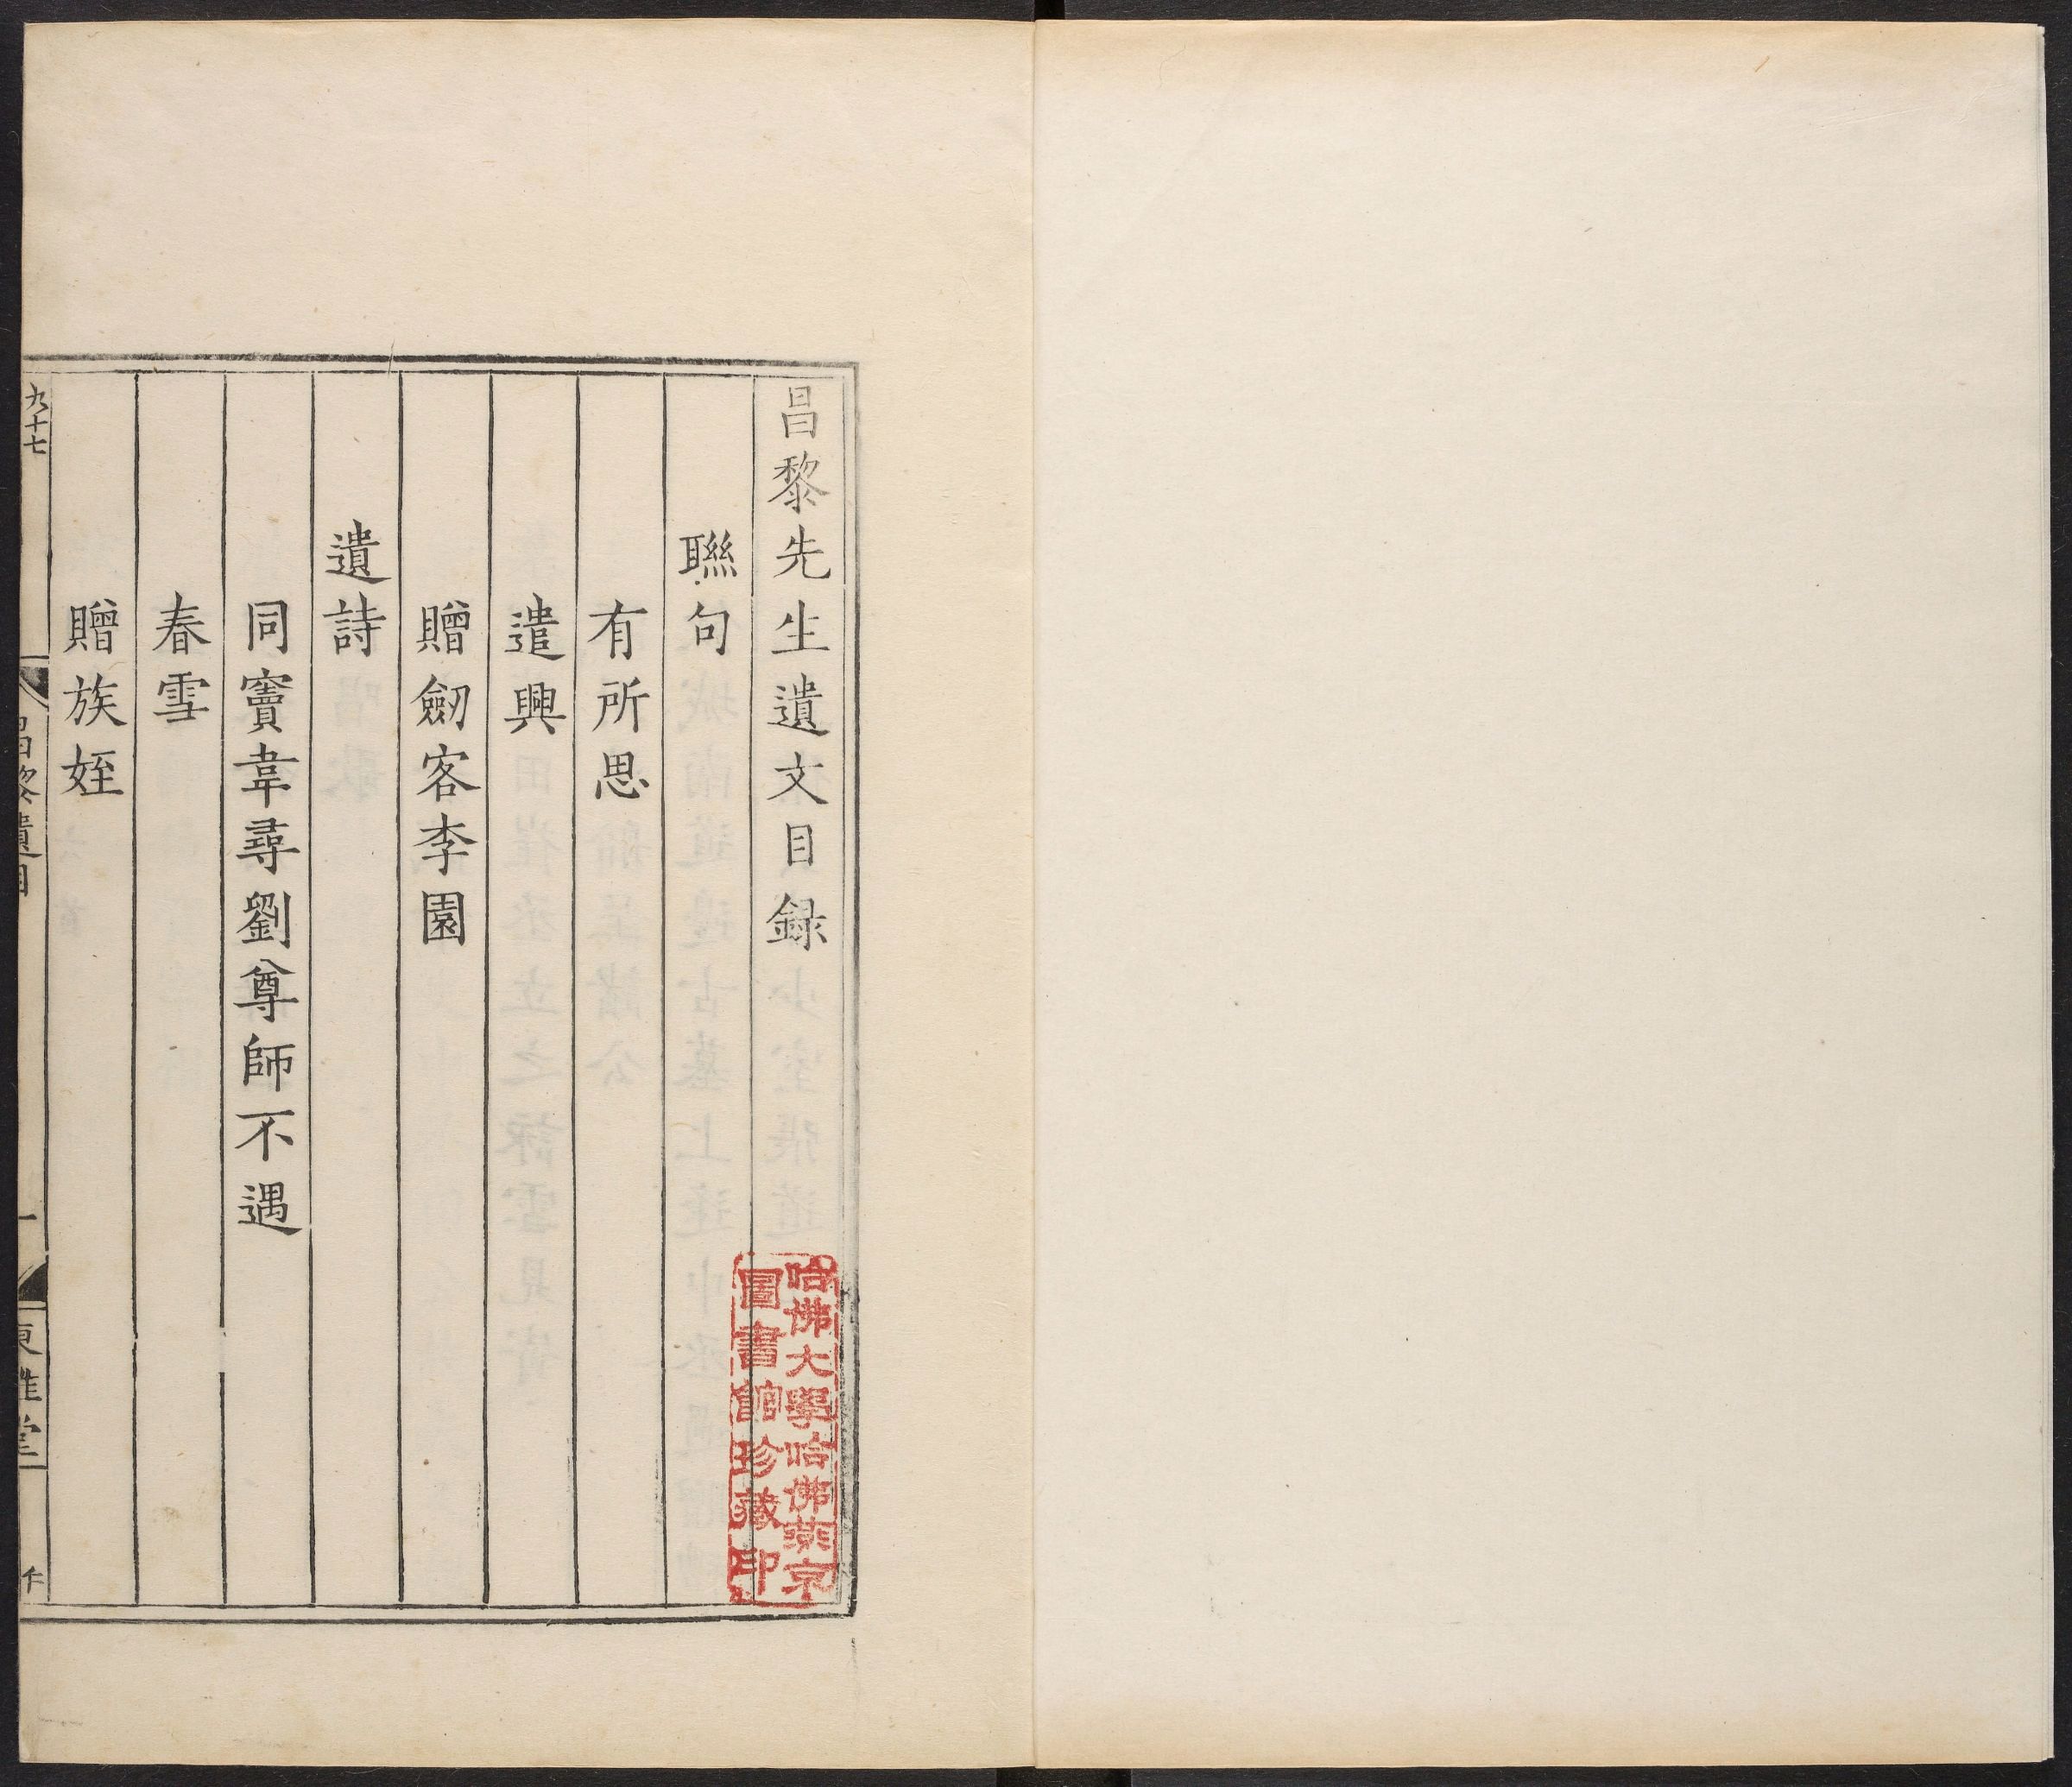 昌黎先生遺文目録
聮句
有所思
遣興
贈劒客李園
遺詩
同竇韋尋劉尊師不遇
春雪
贈族姪
九十七
昌黎遺目
一
東雅堂
哈佛大學哈佛燕京
圖書館珍藏印